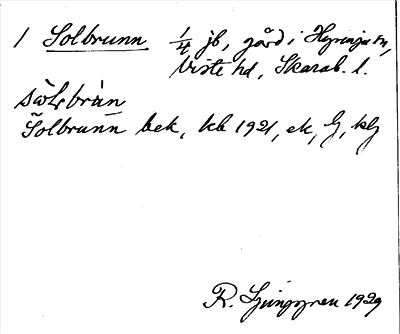 1 Solbrunn 1/4 jb, gård i Hyringa sn,
Viste hd, Skarab. l.
Solbrunn bek, kb 1921, ek, lj, klj
R. Ljunggren 1929